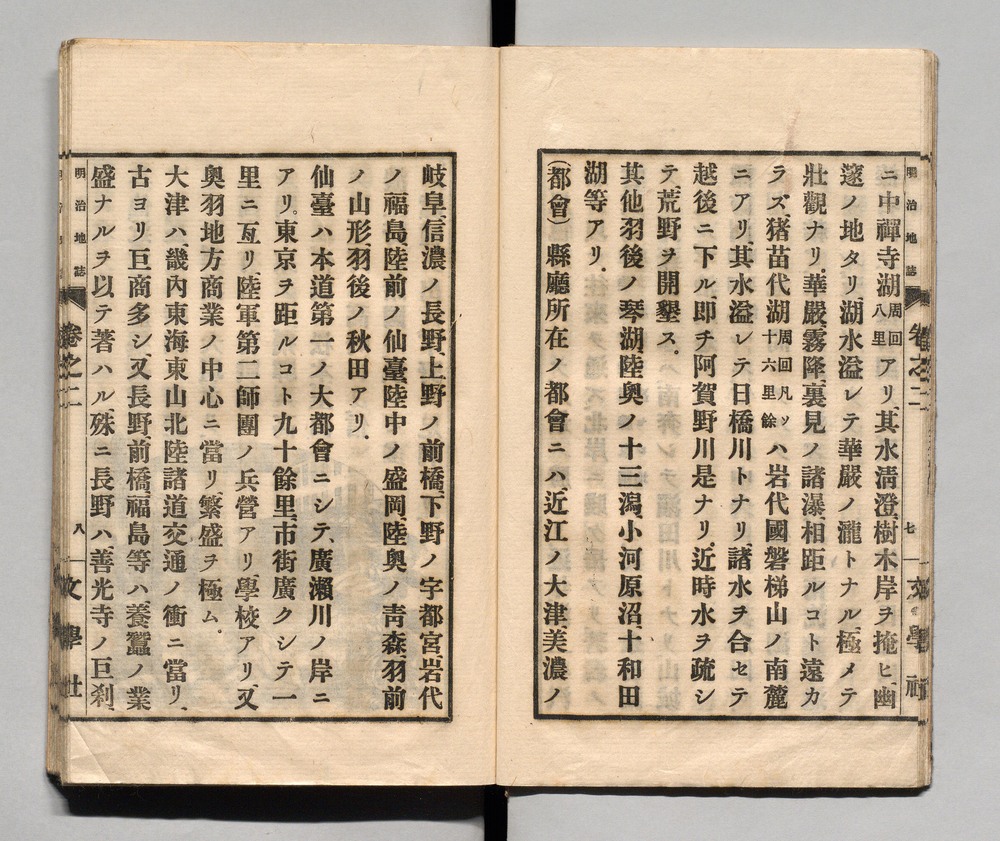 明治地誌 卷之二 七 文學社
ニ中禪寺湖周回八里アリ、其水清澄、樹木岸ヲ掩ヒ、幽
邃ノ地タリ、湖水溢レテ華嚴ノ瀧トナル、極メテ
壯觀ナリ、華嚴、霧降、裏見ノ諸瀑相距ルコト遠カ
ラズ、猪苗代湖周回凡ソ十六里餘ハ岩代國磐梯山ノ南麓
ニアリ、其水溢レテ日橋川トナリ、諸水ヲ合セテ
越後ニ下ル、即チ阿賀野川是ナリ、近時水ヲ疏シ
テ、荒野ヲ開墾ス。
其他羽後ノ琴湖、陸奧ノ十三潟、小河原沼、十和田
湖等アリ。
(都會) 縣廳所在ノ都會ニハ、近江ノ大津、美濃ノ
岐阜、信濃ノ長野、上野ノ前橋、下野ノ宇都宮、岩代
ノ福島、陸前ノ仙臺、陸中ノ盛岡、陸奧ノ青森、羽前
ノ山形、羽後ノ秋田アリ。
仙臺ハ本道第一ノ大都會ニシテ、廣瀨川ノ岸ニ
アリ、東京ヲ距ルコト九十餘里、市街廣クシテ一
里ニ亙リ、陸軍第二師團ノ兵營アリ、學校アリ、又
奧羽地方商業ノ中心ニ當リ、繁盛ヲ極ム。
大津ハ、畿內東海東山北陸諸道交通ノ衝ニ當リ、
古ヨリ巨商多シ、又長野、前橋、福島等ハ、養蠶ノ業
盛ナルヲ以テ著ハル、殊ニ長野ハ善光寺ノ巨刹
明治地誌 卷之二 八 文學社